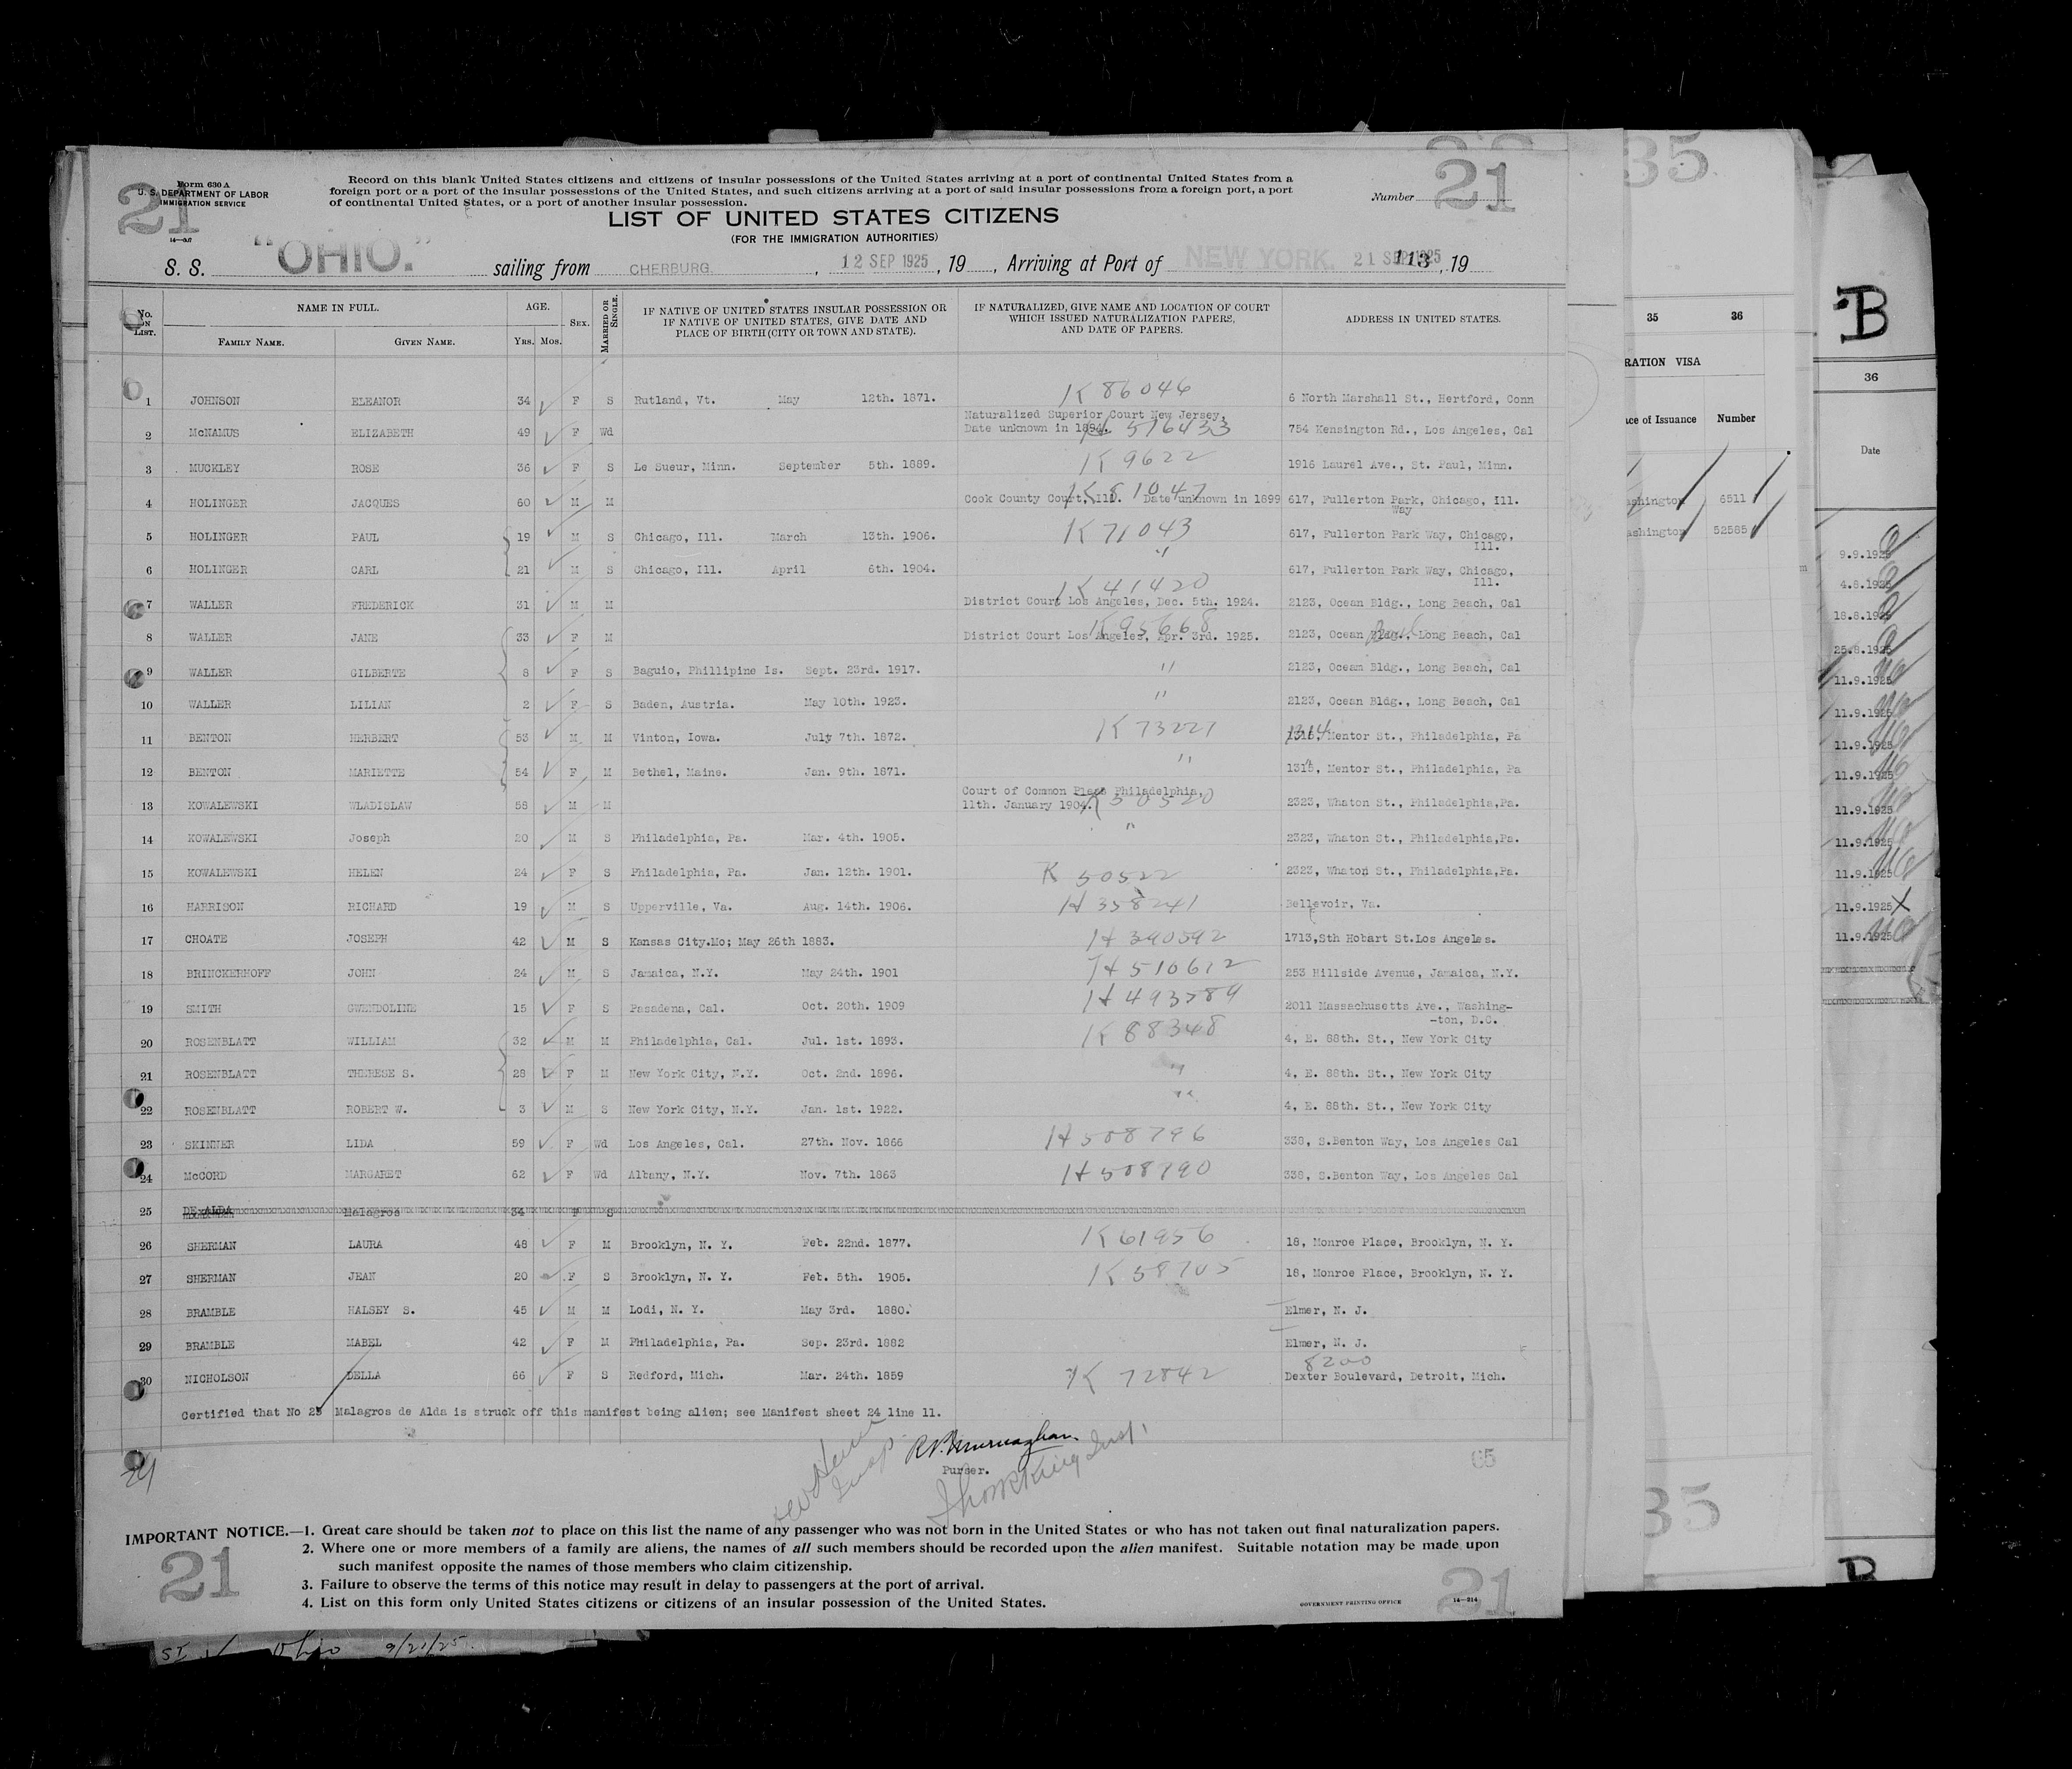 21
Form 630 A
U. S. DEPARTMENT OF LABOR
IMMIGRATION SERVICE
Record on this blank United States citizens and citizens of insular possessions of the United States arriving at a port of continental United States from a
foreign port or a port of the insular possessions of the United States, and such citizens arriving at a port of said insular possessions from a foreign port, a port
of continental United States, or a port of another insular possession.
Number 21
LIST OF UNITED STATES CITIZENS
(FOR THE IMMIGRATION AUTHORITIES)
S. S. "OHIO." sailing from CHERBURG. , 12 SEP 1925 , 19 , Arriving at Port of NEW YORK, 21 SEP 1925 113 , 19
No. ON LIST. NAME IN FULL. FAMILY NAME. GIVEN NAME. AGE. YRS. MOS. SEX. MARRIED OR SINGLE. IF NATIVE OF UNITED STATES INSULAR POSSESSION OR IF NATIVE OF UNITED STATES, GIVE DATE AND PLACE OF BIRTH (CITY OR TOWN AND STATE). IF NATURALIZED, GIVE NAME AND LOCATION OF COURT WHICH ISSUED NATURALIZATION PAPERS, AND DATE OF PAPERS. ADDRESS IN UNITED STATES.
1 JOHNSON ELEANOR 34 F S Rutland, Vt. May 12th. 1871. K 86046 6 North Marshall St., Hertford, Conn
2 McNAMUS ELIZABETH 49 F Wd Naturalized Superior Court New Jersey, Date unknown in 1894. 516433 754 Kensington Rd., Los Angeles, Cal
3 MUCKLEY ROSE 36 F S Le Sueur, Minn. September 5th. 1889. K 9622 1916 Laurel Ave., St. Paul, Minn.
4 HOLINGER JACQUES 60 M M Cook County Court, Ill. Date unknown in 1899 K 81047 617, Fullerton Park, Chicago, Ill.
Way
5 HOLINGER PAUL 19 M S Chicago, Ill. March 13th. 1906. K 71043 617, Fullerton Park Way, Chicago,
Ill.
6 HOLINGER CARL 21 M S Chicago, Ill. April 6th. 1904. " 617, Fullerton Park Way, Chicago,
Ill.
7 WALLER FREDERICK 31 M M K 41420 District Court Los Angeles, Dec. 5th. 1924. 2123, Ocean Bldg., Long Beach, Cal
8 WALLER JANE 33 F M K 95668 District Court Los Angeles, Apr. 3rd. 1925. 2123, Ocean Bldg., Long Beach, Cal
9 WALLER GILBERTE 8 F S Baguio, Phillipine Is. Sept. 23rd. 1917. " 2123, Ocean Bldg., Long Beach, Cal
10 WALLER LILIAN 2 F S Baden, Austria. May 10th. 1923. " 2123, Ocean Bldg., Long Beach, Cal
11 BENTON HERBERT 53 M M Vinton, Iowa. July 7th. 1872. K 73227 1314 Mentor St., Philadelphia, Pa
12 BENTON MARIETTE 54 F M Bethel, Maine. Jan. 9th. 1871. " 1314, Mentor St., Philadelphia, Pa
13 KOWALEWSKI WLADISLAW 58 M M Court of Common Pleas Philadelphia, 11th. January 1904. K 50520 2323, Whaton St., Philadelphia,Pa.
14 KOWALEWSKI Joseph 20 M S Philadelphia, Pa. Mar. 4th. 1905. " 2323, Whaton St., Philadelphia,Pa.
15 KOWALEWSKI HELEN 24 F S Philadelphia, Pa. Jan. 12th. 1901. K 50522 2323, Whaton St., Philadelphia,Pa.
16 HARRISON RICHARD 19 M S Upperville, Va. Aug. 14th. 1906. H 358241 Bellevoir, Va.
17 CHOATE JOSEPH 42 M S Kansas City.Mo; May 26th 1883. H 390592 1713,Sth Hobart St.Los Angeles.
18 BRINCKERHOFF JOHN 24 M S Jamaica, N.Y. May 24th. 1901 H 510612 253 Hillside Avenue, Jamaica, N.Y.
19 SMITH GWENDOLINE 15 F S Pasadena, Cal. Oct. 20th. 1909 H 493589 2011 Massachusetts Ave., Washing-
-ton, D.C.
20 ROSENBLATT WILLIAM 32 M M Philadelphia, Cal. Jul. 1st. 1893. K 88348 4, E. 88th. St., New York City
21 ROSENBLATT THERESE S. 28 F M New York City, N.Y. Oct. 2nd. 1896. " 4, E. 88th. St., New York City
22 ROSENBLATT ROBERT W. 3 M S New York City, N.Y. Jan. 1st. 1922. " 4, E. 88th. St., New York City
23 SKINNER LIDA 59 F Wd Los Angeles, Cal. 27th. Nov. 1866 H 508796 338, S.Benton Way, Los Angeles Cal
24 McCORD MARGARET 62 F Wd Albany, N.Y. Nov. 7th. 1863 H 508790 338, S.Benton Way, Los Angeles Cal
25 DE ALDA Malagros 34 F S
26 SHERMAN LAURA 48 F M Brooklyn, N. Y. Feb. 22nd. 1877. K 61956 18, Monroe Place, Brooklyn, N. Y.
27 SHERMAN JEAN 20 F S Brooklyn, N. Y. Feb. 5th. 1905. K 58705 18, Monroe Place, Brooklyn, N. Y.
28 BRAMBLE HALSEY S. 45 M M Lodi, N. Y. May 3rd. 1880. Elmer, N. J.
29 BRAMBLE MABEL 42 F M Philadelphia, Pa. Sep. 23rd. 1882 Elmer, N. J.
8200
30 NICHOLSON DELLA 66 F S Redford, Mich. Mar. 24th. 1859 K 72842 Dexter Boulevard, Detroit, Mich.
Certified that No 25 Malagros de Alda is struck off this manifest being alien; see Manifest sheet 24 line 11.
Purser.
65
IMPORTANT NOTICE.—1. Great care should be taken not to place on this list the name of any passenger who was not born in the United States or who has not taken out final naturalization papers.
2. Where one or more members of a family are aliens, the names of all such members should be recorded upon the alien manifest. Suitable notation may be made upon
such manifest opposite the names of those members who claim citizenship.
3. Failure to observe the terms of this notice may result in delay to passengers at the port of arrival.
4. List on this form only United States citizens or citizens of an insular possession of the United States.
GOVERNMENT PRINTING OFFICE 14—214
21
21
Ohio 9/21/25
35
35 36
RATION VISA
ce of Issuance Number
shington 6511
ashington 52585
35
B
36
Date
9.9.1925
4.8.1925
18.8.1925
25.8.1925
11.9.1925
11.9.1925
11.9.1925
11.9.1925
11.9.1925
11.9.1925
11.9.1925
11.9.1925
11.9.1925
B